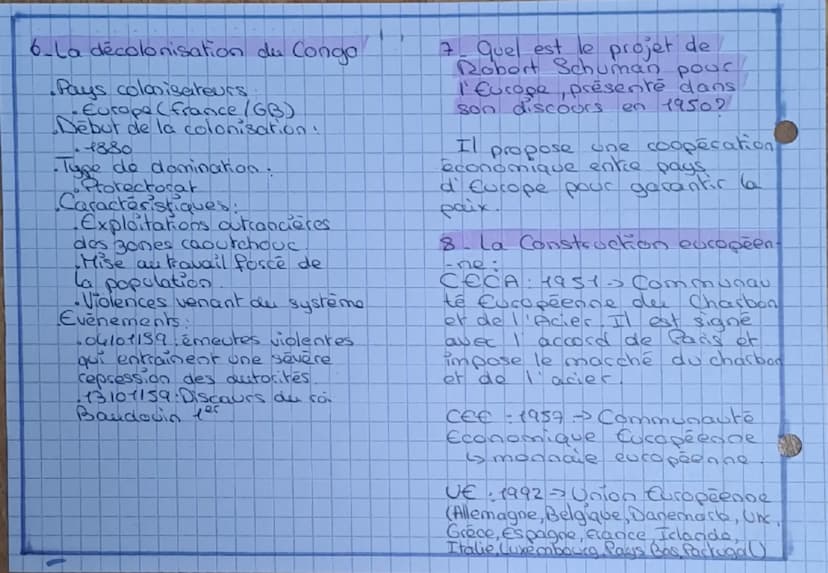 6-La décolonisation du Congo
.Pays colonisateurs:
.Europe(france/GB)
.Début de la colonisation:
.1880
.Type de domination:
.Protectorat
.Caractéristiques:
.Exploitations outrancières
des zones caoutchouc
.Mise au travail forcé de
la population.
.Violences venant du système
.Evènements:
.04/01/59:émeutes violentes
qui entrainent une sévère
repression des autorités
.13/01/59:Discours du roi
Baudouin 1er
7- Quel est le projet de
Robert Schuman pour
l'Europe, présenté dans
son discours en 1950?
Il propose une coopération
économique entre pays
d'Europe pour garantir la
paix.
8- La Construction européen-
-ne:
CECA:1951→Communau
té Européenne du Charbon
et de l'Acier. Il est signé
avec l'accord de Paris et
impose le marché du charbon
et de l'acier.
CEE:1957→Communauté
Economique Européenne
↳monnaie européenne.
UE:1992→Union Européenne
(Allemagne,Belgique,Danemark,
Grèce,Espagne,France,Irlande,
Italie,Luxembourg,Pays Bas,Portugal)